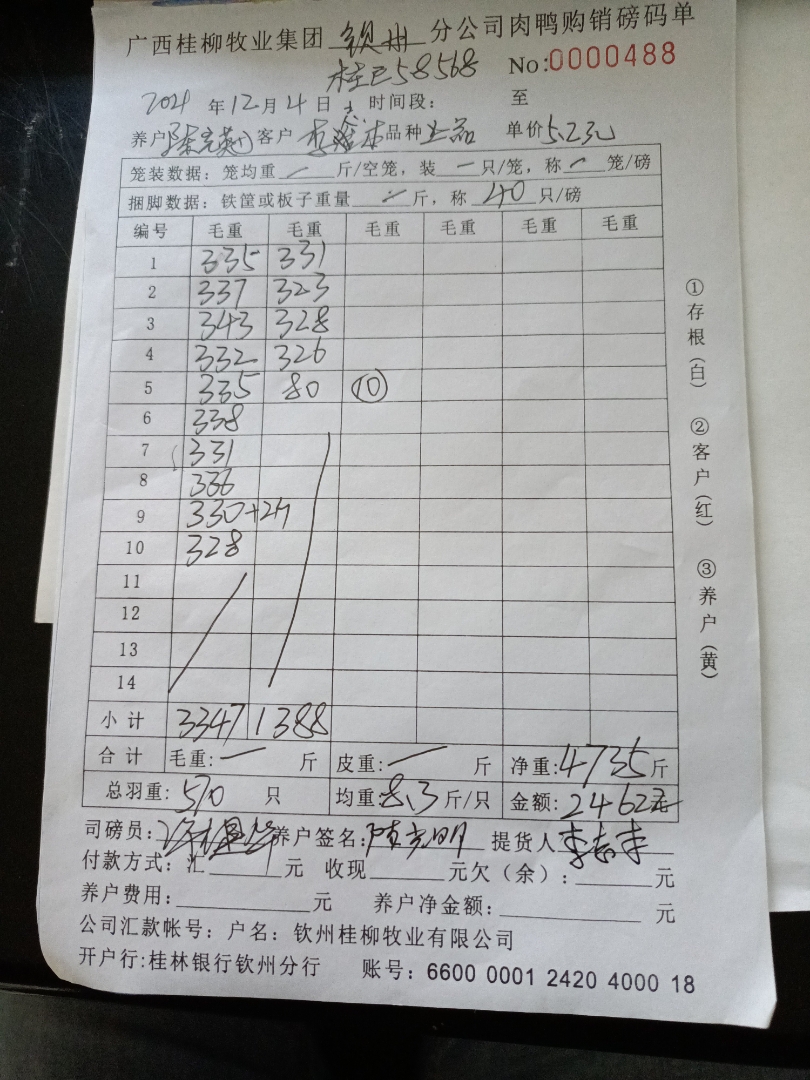 广西桂柳牧业集团 钦州 分公司肉鸭购销磅码单
桂E58568 No:0000488
2024 年 12 月 4 日 时间段: 至
养户 客户 品种 单价 5.23元
笼装数据: 笼均重 — 斤/空笼, 装 — 只/笼, 称 — 笼/磅
捆脚数据: 铁筐或板子重量 — 斤, 称 40 只/磅
编号 毛重 毛重 毛重 毛重 毛重 毛重
1 335 331
2 337 323
3 343 328
4 332 326
5 335 80 ⑩
6 338
7 331
8 336
9 330+2
10 328
11
12
13
14
小计 3347 1388
合计 毛重: — 斤 皮重: — 斤 净重: 4735 斤
总羽重: 570 只 均重 8.3 斤/只 金额: 2462
司磅员: 养户签名: 陈光明 提货人
付款方式: 汇 元 收现 元欠(余): 元
养户费用: 元 养户净金额: 元
公司汇款帐号: 户名: 钦州桂柳牧业有限公司
开户行:桂林银行钦州分行 账号: 6600 0001 2420 4000 18
①存根(白) ②客户(红) ③养户(黄)